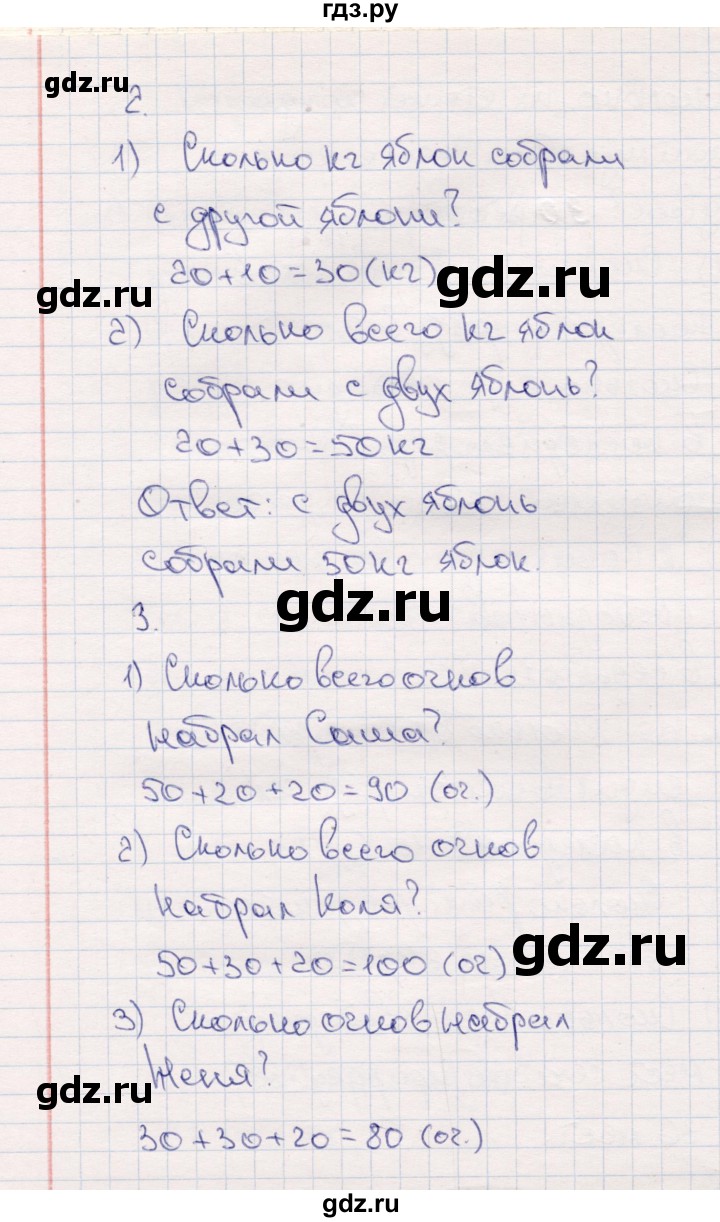 гдз.ру
gdz.ru
2.
1) Сколько кг яблок собрали
с другой яблони?
20+10=30(кг)
gdz.ru
gdz.ru
2) Сколько всего кг яблок
собрали с двух яблонь?
20+30=50кг
Ответ: с двух яблонь
собрали 50кг яблок.
gdz.ru
3.
1) Сколько всего очков
набрал Саша?
50+20+20=90 (оч.)
2) Сколько всего очков
набрал Коля?
50+30+20=100 (оч)
gdz.ru
3) Сколько очков набрал
Женя?
gdz.ru
30+30+20=80 (оч.)
gdz.ru